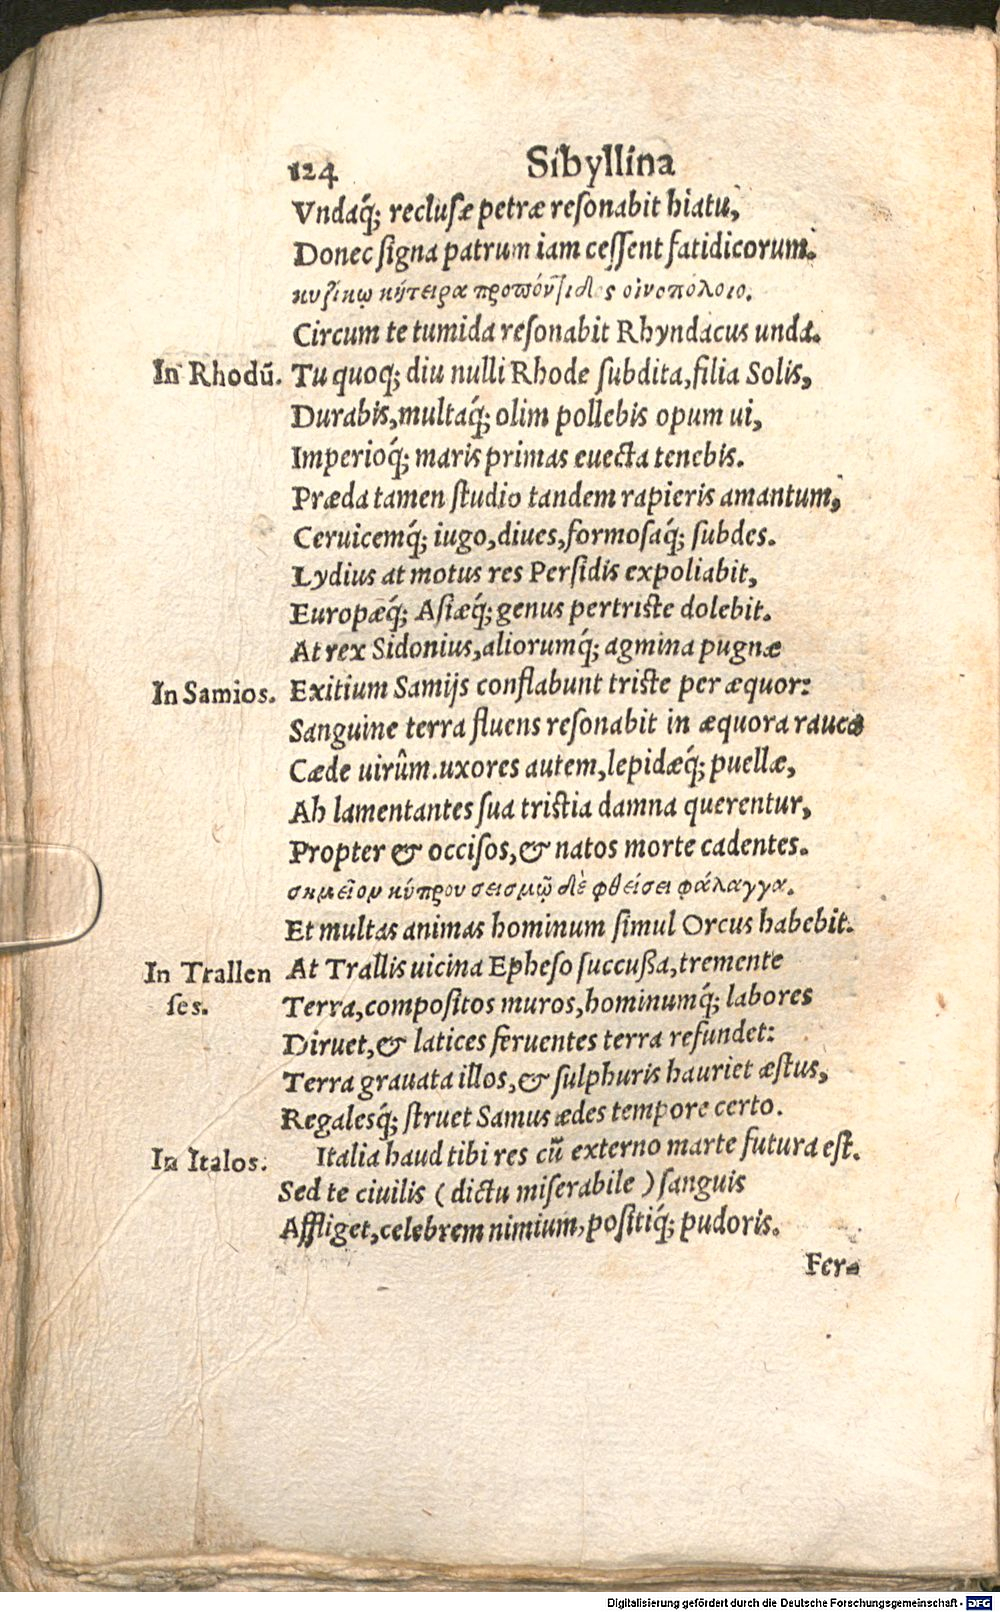 124 Sibyllina
Vndaq́; reclusæ petræ resonabit hiatu,
Donec signa patrum iam cessent fatidicorum.
κυζίκῳ
Circum te tumida resonabit Rhyndacus unda.
In Rhodū. Tu quoq; diu nulli Rhode subdita, filia Solis,
Durabis, multaq́; olim pollebis opum ui,
Imperioq́; maris primas euecta tenebis.
Præda tamen studio tandem rapieris amantum,
Ceruicemq́; iugo, diues, formosaq́; subdes.
Lydius at motus res Persidis expoliabit,
Europæq́; Asiæq́; genus pertriste dolebit.
At rex Sidonius, aliorumq́; agmina pugnæ
In Samios. Exitium Samijs conflabunt triste per æquor:
Sanguine terra fluens resonabit in æquora rauca
Cæde uirûm. uxores autem, lepidæq́; puellæ,
Ah lamentantes sua tristia damna querentur,
Propter & occisos, & natos morte cadentes.
σημεῖον κύπρου σεισμῷ δὲ φθείσει φάλαγγα.
Et multas animas hominum simul Orcus habebit.
In Trallen At Trallis uicina Epheso succußa, tremente
ses. Terra, compositos muros, hominumq́; labores
Diruet, & latices feruentes terra refundet:
Terra grauata illos, & sulphuris hauriet æstus,
Regalesq́; struet Samus ædes tempore certo.
In Italos. Italia haud tibi res cū externo marte futura est.
Sed te ciuilis (dictu miserabile) sanguis
Affliget, celebrem nimium, positiq́; pudoris.
Fer-
Digitalisierung gefördert durch die Deutsche Forschungsgemeinschaft - DFG